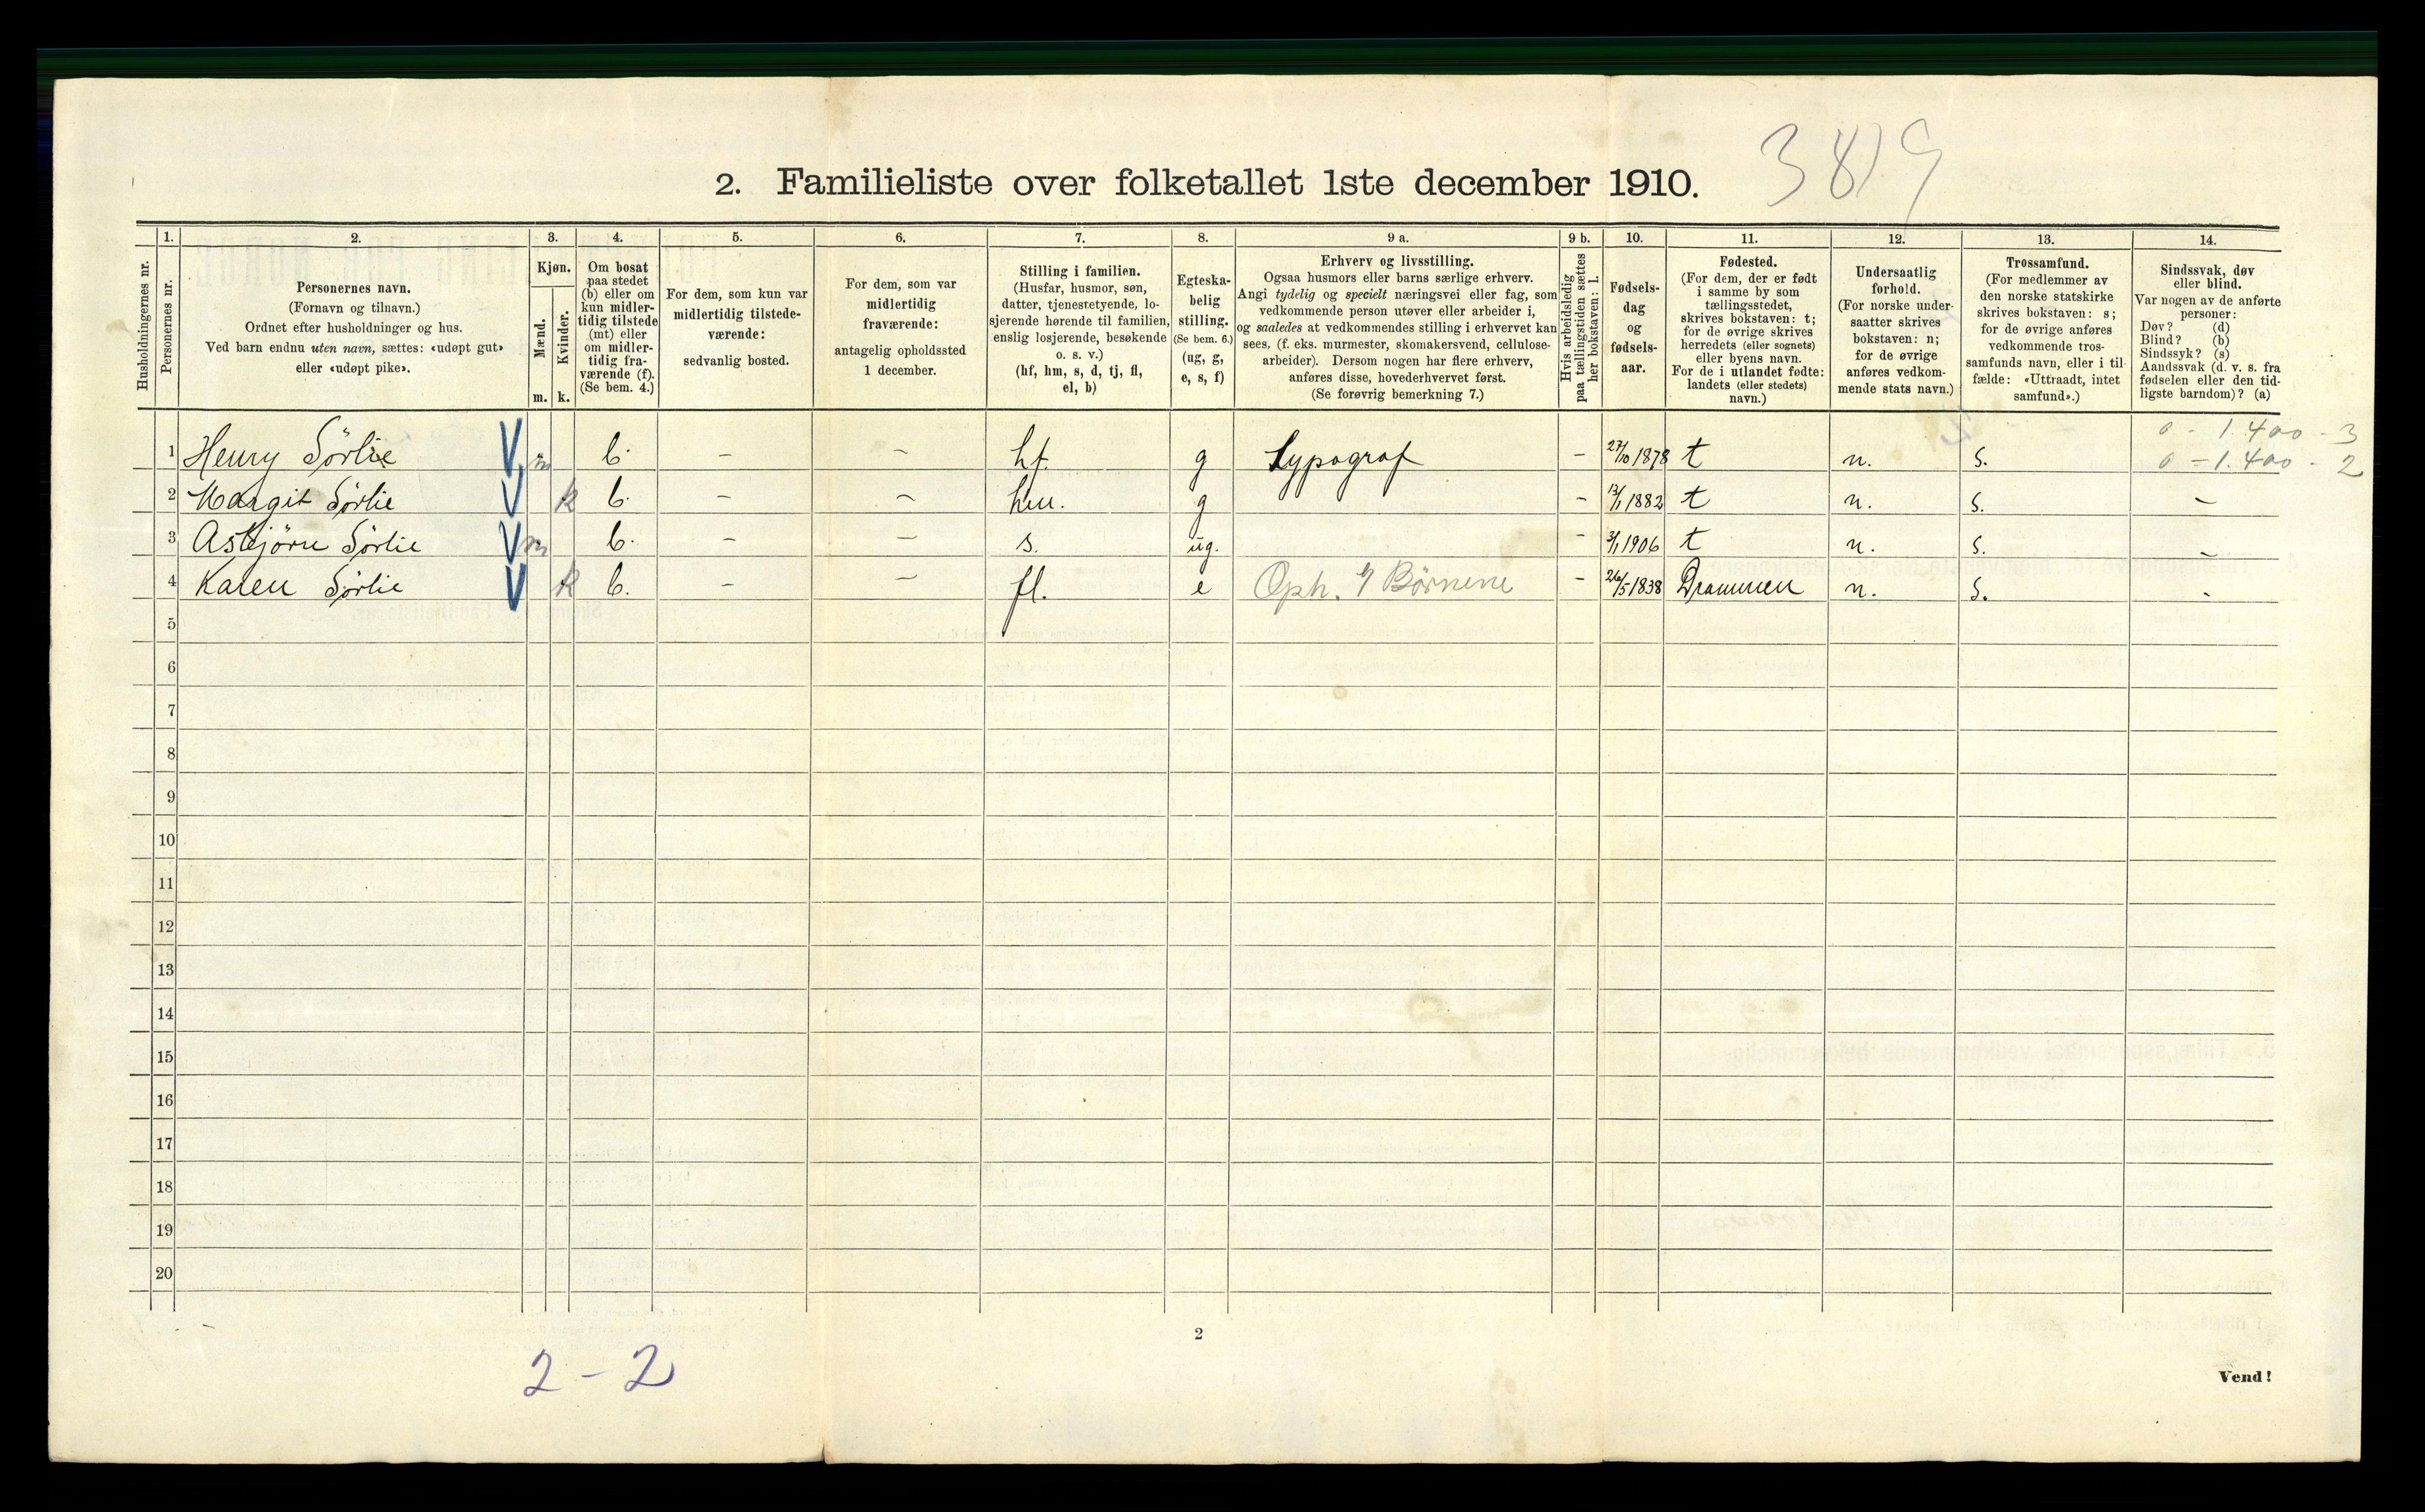 3819
2. Familieliste over folketallet 1ste december 1910.
Husholdningernes nr.
1. Personernes nr.
2. Personernes navn.
(Fornavn og tilnavn.)
Ordnet efter husholdninger og hus.
Ved barn endnu uten navn, sættes: «udøpt gut»
eller «udøpt pike».
3. Kjøn.
Mænd. m.
Kvinder. k.
4. Om bosat
paa stedet
(b) eller om
kun midler-
tidig tilstede
(mt) eller
om midler-
tidig fra-
værende (f).
(Se bem. 4.)
5. For dem, som kun var
midlertidig tilstede-
værende:
sedvanlig bosted.
6. For dem, som var
midlertidig
fraværende:
antagelig opholdssted
1 december.
7. Stilling i familien.
(Husfar, husmor, søn,
datter, tjenestetyende, lo-
sjerende hørende til familien,
enslig losjerende, besøkende
o. s. v.)
(hf, hm, s, d, tj, fl,
el, b)
8. Egteska-
belig
stilling.
(Se bem. 6.)
(ug, g,
e, s, f)
9 a. Erhverv og livsstilling.
Ogsaa husmors eller barns særlige erhverv.
Angi tydelig og specielt næringsvei eller fag, som
vedkommende person utøver eller arbeider i,
og saaledes at vedkommendes stilling i erhvervet kan
sees, (f. eks. murmester, skomakersvend, cellulose-
arbeider). Dersom nogen har flere erhverv,
anføres disse, hovederhvervet først.
(Se forøvrig bemerkning 7.)
9 b. Hvis arbeidsledig
paa tællingstiden sættes
her bokstaven: l.
10. Fødsels-
dag
og
fødsels-
aar.
11. Fødested.
(For dem, der er født
i samme by som
tællingsstedet,
skrives bokstaven: t;
for de øvrige skrives
herredets (eller sognets)
eller byens navn.
For de i utlandet fødte:
landets (eller stedets)
navn.)
12. Undersaatlig
forhold.
(For norske under-
saatter skrives
bokstaven: n;
for de øvrige
anføres vedkom-
mende stats navn.)
13. Trossamfund.
(For medlemmer av
den norske statskirke
skrives bokstaven: s;
for de øvrige anføres
vedkommende tros-
samfunds navn, eller i til-
fælde: «Uttraadt, intet
samfund».)
14. Sindssvak, døv
eller blind.
Var nogen av de anførte
personer:
Døv? (d)
Blind? (b)
Sindssyk? (s)
Aandssvak (d. v. s. fra
fødselen eller den tid-
ligste barndom)? (a)
0 - 1.400 - 3
1 Henry Sörlie V m b. - - hf. g Typograf - 27/10 1878 t n. s. 0 - 1.400 - 2
2 Margit Sörlie V k b. - - hm. g - 13/1 1882 t n. s. -
3 Asbjörn Sörlie V m b. - - s. ug. - 3/1 1906 t n. s. -
4 Karen Sörlie V k b. - - fl. e Oph. af Börnene - 26/5 1838 Drammen n. s. -
5
6
7
8
9
10
11
12
13
14
15
16
17
18
19
20
2
2 - 2
Vend!